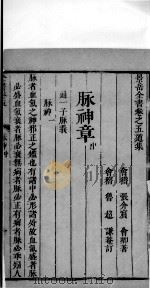 景岳全書卷之五道集
會稽 張介賓 會卿著
會稽 魯超 謙菴訂
脉神章上
通一子脉義
脉神一
脉者血氣之神邪正之鑑也有諸中必形諸外故血氣盛者脉
必盛血氣衰者脉必衰無病者脉必正有病者脉必乖矧人